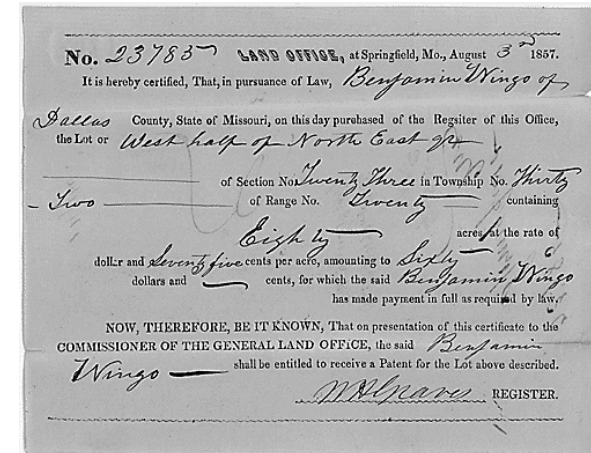 No. 23785 LAND OFFICE, at Springfield, Mo., August 3rd 1857.
It is hereby certified, That, in pursuance of Law, Benjamin Wingo of
Dallas County, State of Missouri, on this day purchased of the Regsiter of this Office,
the Lot or West half of North East qr
of Section No. Twenty Three in Township No. Thirty
- Two of Range No. Twenty containing
Eighty acres, at the rate of
dollar and Seventy five cents per acre, amounting to Sixty
dollars and cents, for which the said Benjamin Wingo
has made payment in full as required by law.
NOW, THEREFORE, BE IT KNOWN, That on presentation of this certificate to the
COMMISSIONER OF THE GENERAL LAND OFFICE, the said Benjamin
Wingo shall be entitled to receive a Patent for the Lot above described.
W H Graves REGISTER.